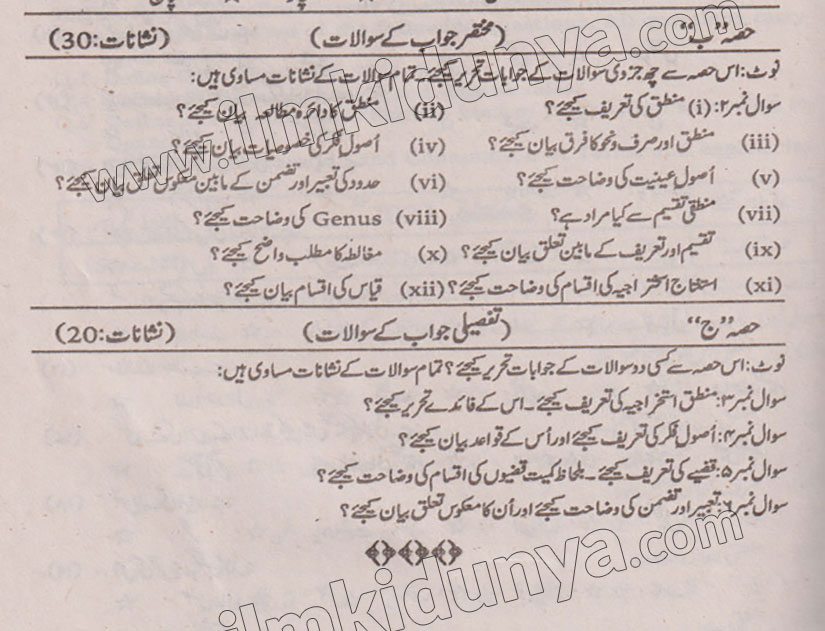 حصہ ”ب“ (مختصر جواب کے سوالات) (نشانات: 30)
نوٹ: اس حصہ سے چھ جزوی سوالات کے جوابات تحریر کیجئے۔ تمام سوالات کے نشانات مساوی ہیں:
سوال نمبر ۲: (i) منطق کی تعریف کیجئے؟ (ii) منطق کا دائرہ مطالعہ بیان کیجئے؟
(iii) منطق اور صرف و نحو کا فرق بیان کیجئے؟ (iv) اُصولِ فکر کی خصوصیات بیان کیجئے؟
(v) اُصولِ عینیت کی وضاحت کیجئے؟ (vi) حدود کی تعبیر اور تضمن کے مابین معکوس تعلق بیان کیجئے؟
(vii) منطقی تقسیم سے کیا مراد ہے؟ (viii) Genus کی وضاحت کیجئے؟
(ix) تقسیم اور تعریف کے مابین تعلق بیان کیجئے؟ (x) مغالطہ کا مطلب واضح کیجئے؟
(xi) استنتاج استخراجیہ کی اقسام کی وضاحت کیجئے؟ (xii) قیاس کی اقسام بیان کیجئے؟
حصہ ”ج“ (تفصیلی جواب کے سوالات) (نشانات: 20)
نوٹ: اس حصہ سے کسی دو سوالات کے جوابات تحریر کیجئے؟ تمام سوالات کے نشانات مساوی ہیں:
سوال نمبر ۳: منطق استخراجیہ کی تعریف کیجئے۔ اس کے فائدے تحریر کیجئے؟
سوال نمبر ۴: اُصولِ فکر کی تعریف کیجئے اور اُس کے قواعد بیان کیجئے؟
سوال نمبر ۵: قضیے کی تعریف کیجئے۔ بلحاظ کمیت قضیوں کی اقسام کی وضاحت کیجئے؟
سوال نمبر ۶: تعبیر اور تضمن کی وضاحت کیجئے اور اُن کا معکوس تعلق بیان کیجئے؟
www.ilmkidunya.com
ilmkidunya.com